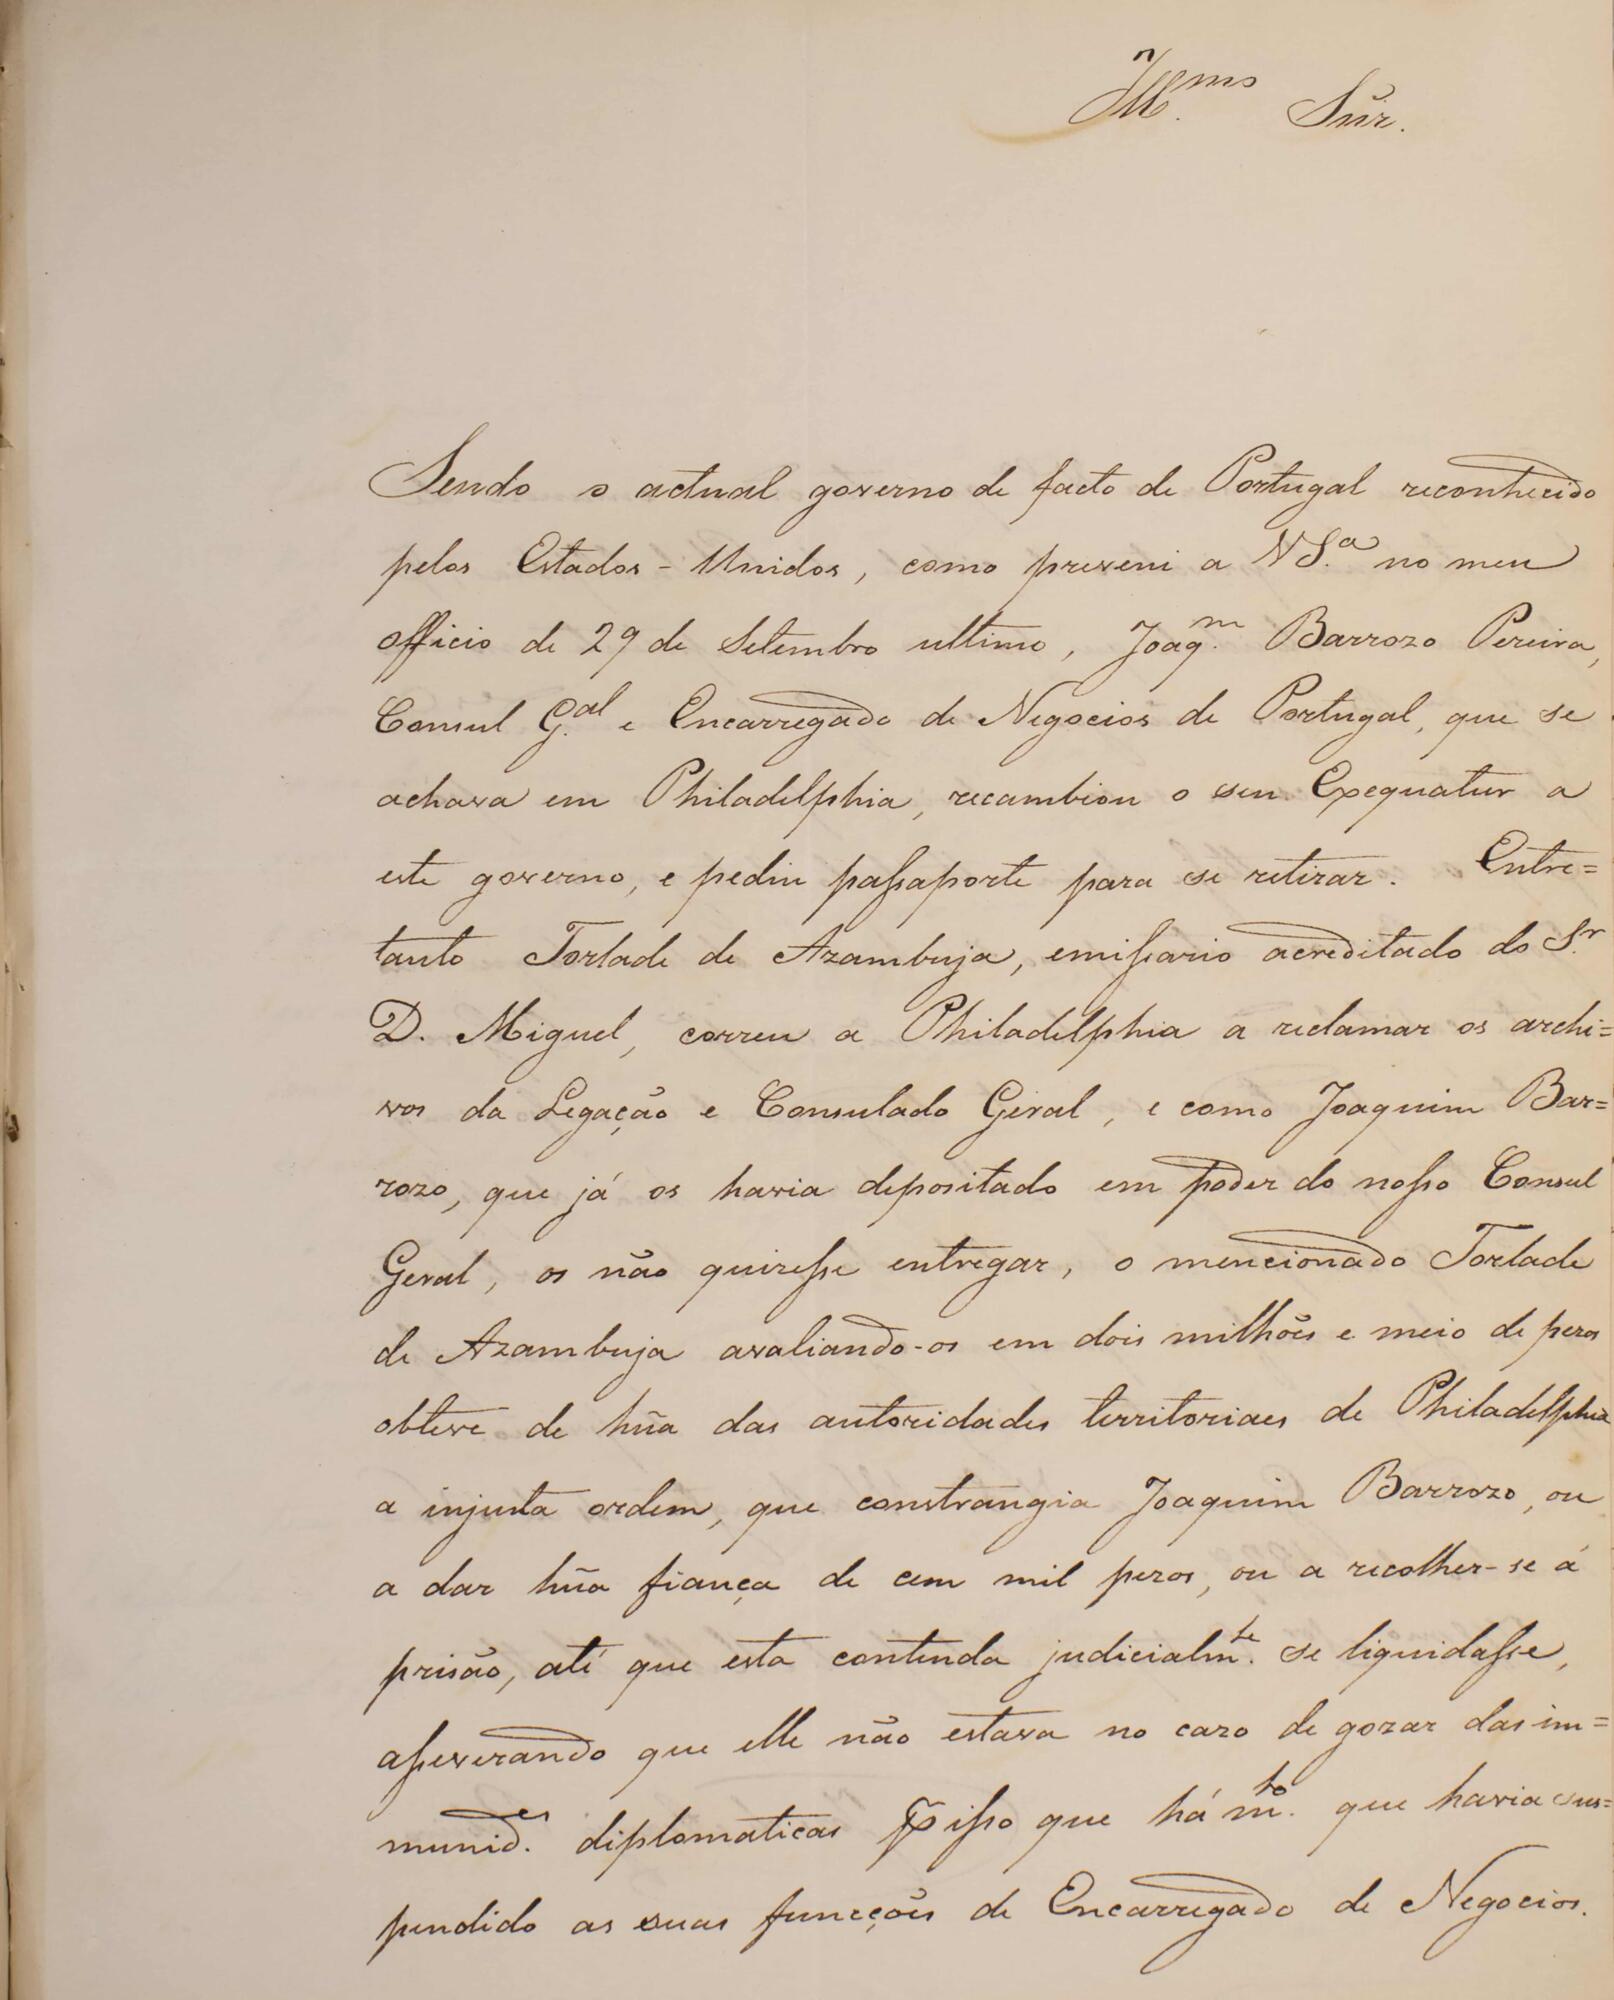 Ill.mo Snr.
Sendo o actual governo de facto de Portugal reconhecido
pelos Estados-Unidos, como preveni a VS.a no meu
officio de 29 de Setembro ultimo, Joaq.m Barrozo Pereira,
Consul G.al e Encarregado de Negocios de Portugal, que se
achava em Philadelphia, recambiou o seu Exequatur a
este governo, e pediu passaporte para se retirar. Entre=
tanto Torlade de Azambuja, emissario acreditado do S.r
D. Miguel, correu a Philadelphia a reclamar os archi=
vos da Legação e Consulado Geral, e como Joaquim Bar=
rozo, que já os havia depositado em poder do nosso Consul
Geral, os não quizesse entregar, o mencionado Torlade
de Azambuja avaliando-os em dois milhões e meio de pezos
obteve de hũa das autoridades territoriaes de Philadelphia
a injusta ordem, que constrangia Joaquim Barrozo, ou
a dar hũa fiança de cem mil pezos, ou a recolher-se á
prisão, até que esta contenda judicialm.te se liquidasse,
asseverando que elle não estava no cazo de gozar das im=
munid.es diplomaticas p isso que há m.to que havia sus=
pendido as suas funcções de Encarregado de Negocios.